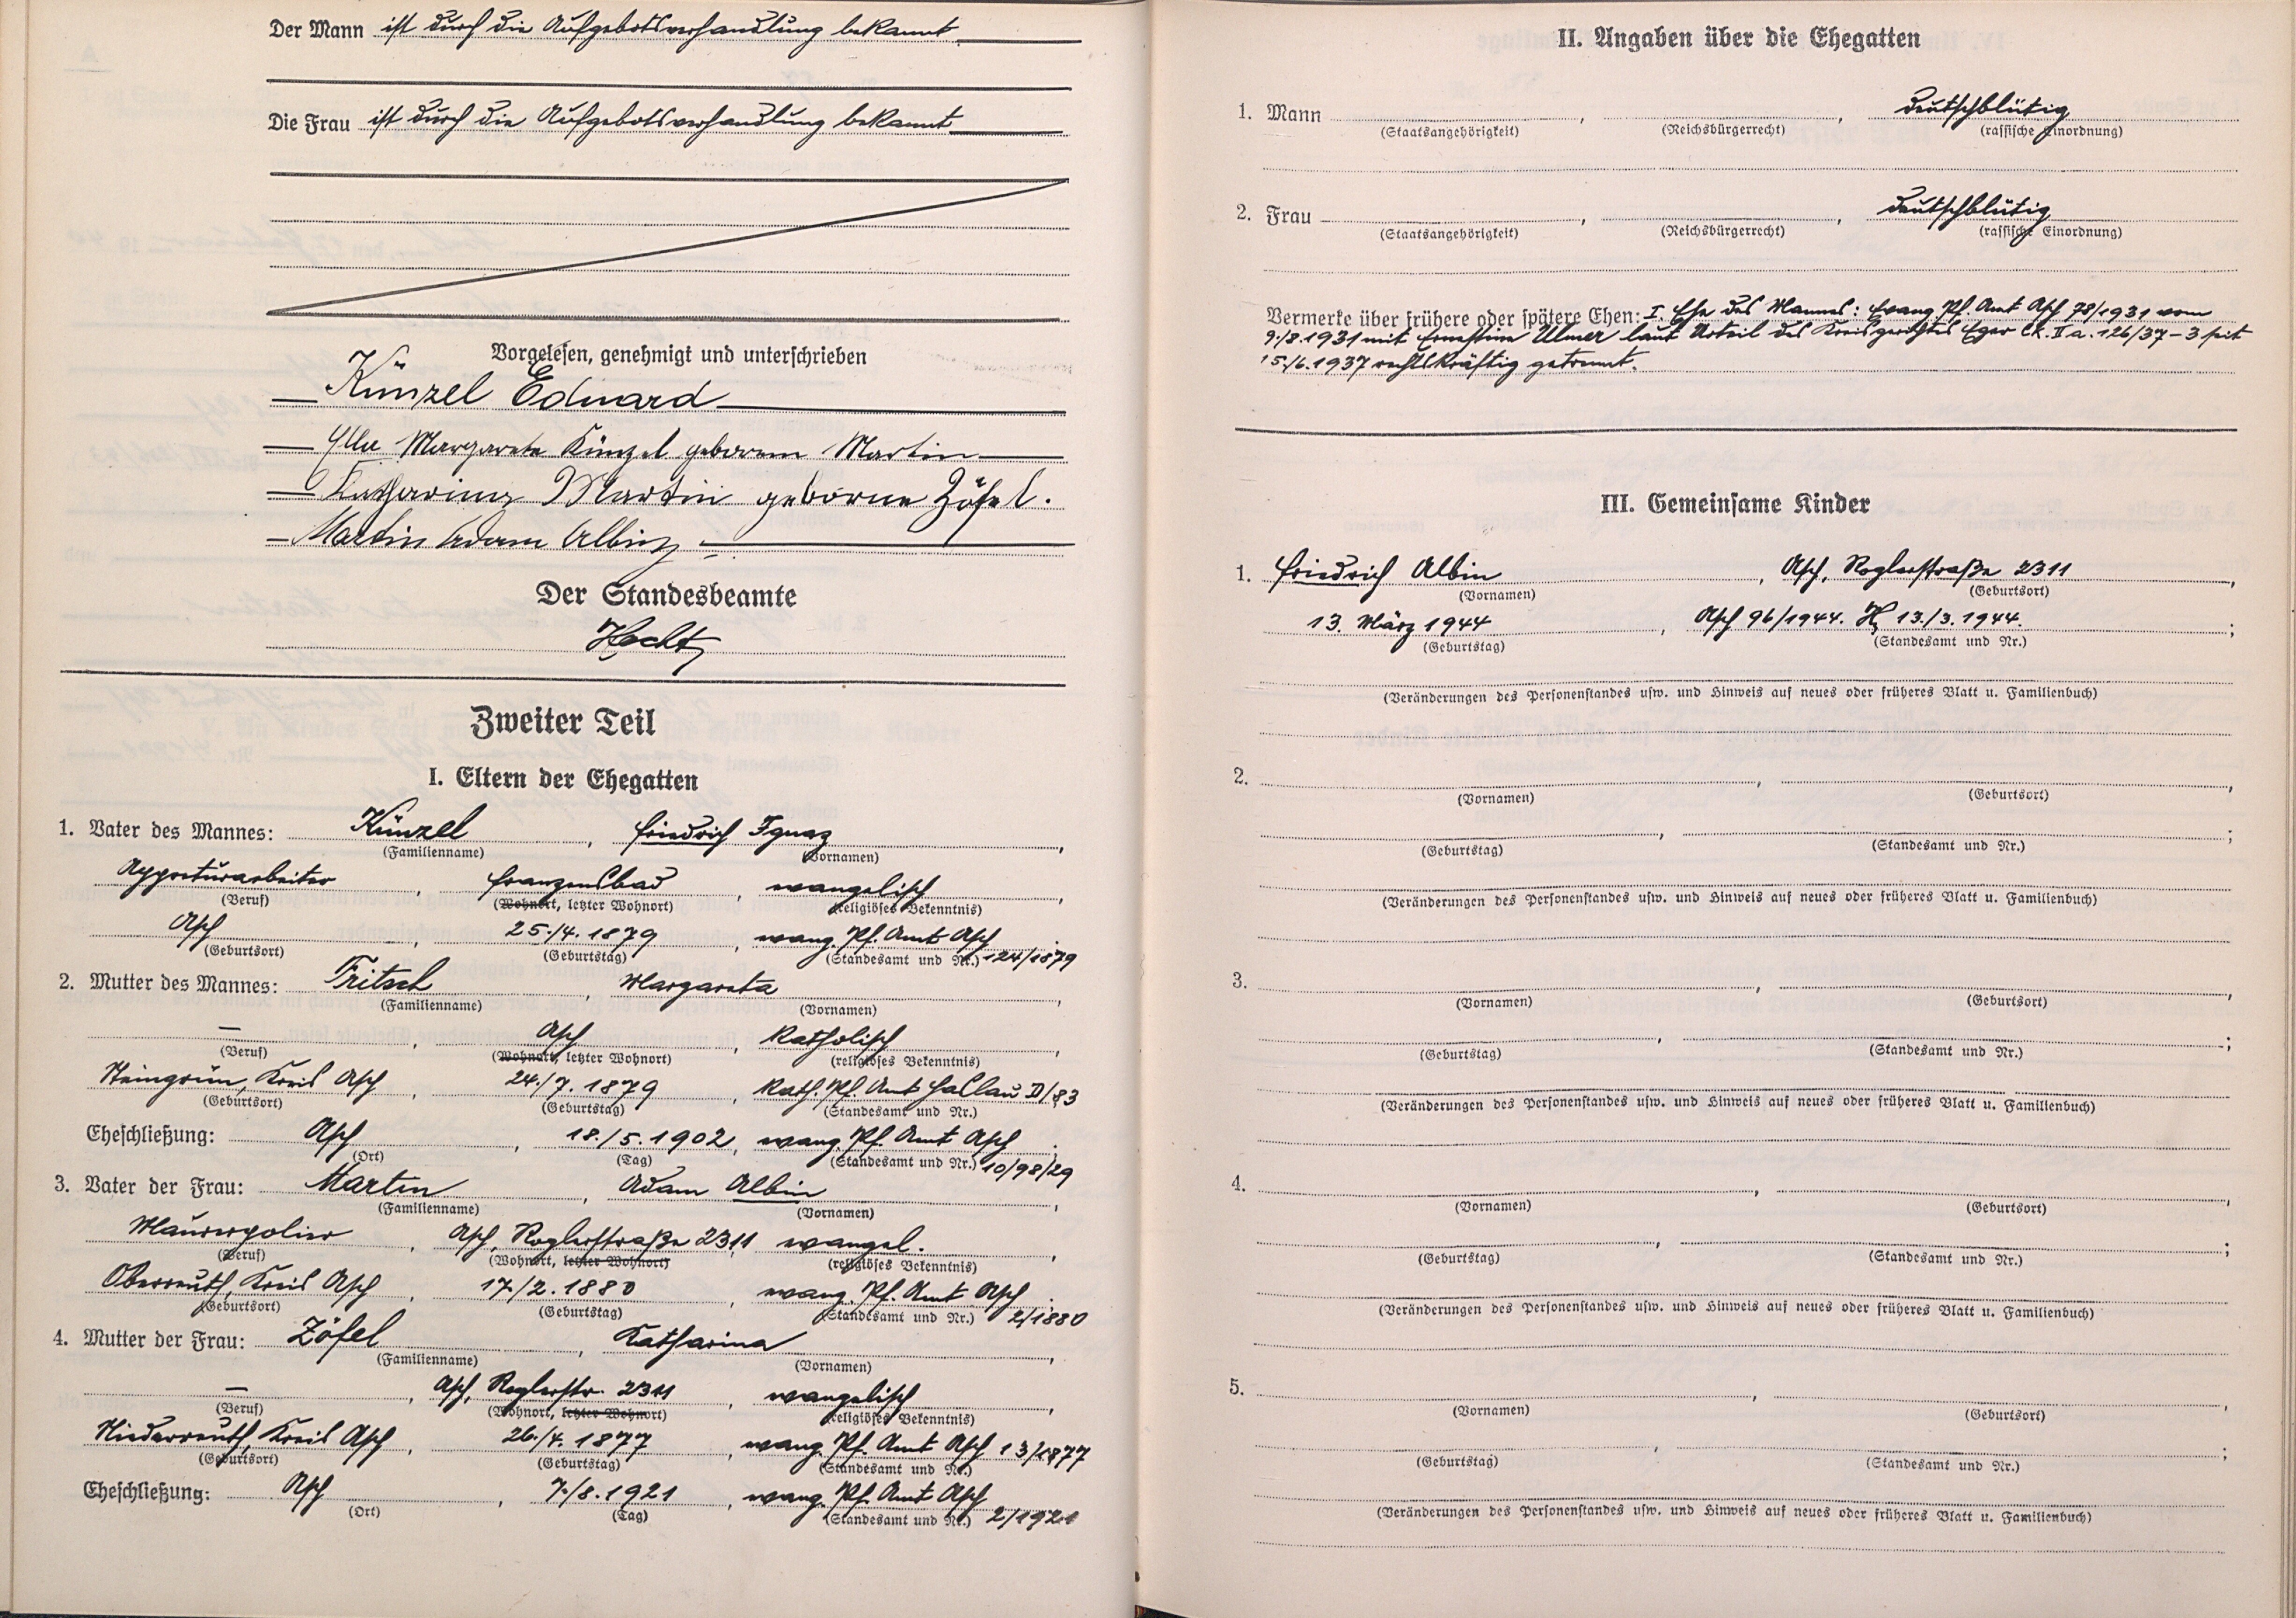 Der Mann ist durch die Aufgebotsverhandlung bekannt
Die Frau ist durch die Aufgebotsverhandlung bekannt
Vorgelesen, genehmigt und unterschrieben
Künzel Eduard
Margareta Künzel geborene Martin
Katharina Martin geborne Zöfel.
Martin Adam Albin
Der Standesbeamte
Hecht
Zweiter Teil
I. Eltern der Ehegatten
1. Vater des Mannes: Künzel, Friedrich Ignaz,
(Familienname) (Vornamen)
Appreturarbeiter, Franzensbad, evangelisch,
(Beruf) (Wohnort, letzter Wohnort) (religiöses Bekenntnis)
Asch, 25./4. 1879, evang. Pf. Amt Asch 124/1879
(Geburtsort) (Geburtstag) (Standesamt und Nr.)
2. Mutter des Mannes: Fritsch, Margareta,
(Familienname) (Vornamen)
—, Asch, katholisch,
(Beruf) (Wohnort, letzter Wohnort) (religiöses Bekenntnis)
Steingrün, Kreis Asch, 24./7. 1879, kath. Pf. Amt Haslau D/83
(Geburtsort) (Geburtstag) (Standesamt und Nr.)
Eheschließung: Asch, 18./5. 1902, evang. Pf. Amt Asch 10/98/29
(Ort) (Tag) (Standesamt und Nr.)
3. Vater der Frau: Martin, Adam Albin,
(Familienname) (Vornamen)
Maurerpolier, Asch, Roglerstraße 2311 evangel.,
(Beruf) (Wohnort, letzter Wohnort) (religiöses Bekenntnis)
Oberreuth, Kreis Asch, 17./2. 1880, evang. Pf. Amt Asch 2/1880
(Geburtsort) (Geburtstag) (Standesamt und Nr.)
4. Mutter der Frau: Zöfel, Katharina,
(Familienname) (Vornamen)
—, Asch, Roglerstr. 2311, evangelisch,
(Beruf) (Wohnort, letzter Wohnort) (religiöses Bekenntnis)
Niederreuth, Kreis Asch, 26./4. 1877, evang. Pf. Amt Asch 13/1877
(Geburtsort) (Geburtstag) (Standesamt und Nr.)
Eheschließung: Asch, 7./8. 1921, evang. Pf. Amt Asch 2/1921
(Ort) (Tag) (Standesamt und Nr.)
II. Angaben über die Ehegatten
1. Mann , , deutschblütig
(Staatsangehörigkeit) (Reichsbürgerrecht) (rassische Einordnung)
2. Frau , , deutschblütig
(Staatsangehörigkeit) (Reichsbürgerrecht) (rassische Einordnung)
Vermerke über frühere oder spätere Ehen: I. Ehe des Mannes: Evang. Pf. Amt Asch 78/1931 vom
9./8. 1931 mit Ernestine Ulmer laut Urteil des Kreisgerichtes Eger Ck. II a. 126/37-3 seit
15./6. 1937 rechtskräftig getrennt.
III. Gemeinsame Kinder
1. Friedrich Albin, Asch, Roglerstraße 2311,
(Vornamen) (Geburtsort)
13. März 1944, Asch 96/1944. H, 13./3. 1944. ;
(Geburtstag) (Standesamt und Nr.)
(Veränderungen des Personenstandes usw. und Hinweis auf neues oder früheres Blatt u. Familienbuch)
2. , ,
(Vornamen) (Geburtsort)
, ;
(Geburtstag) (Standesamt und Nr.)
(Veränderungen des Personenstandes usw. und Hinweis auf neues oder früheres Blatt u. Familienbuch)
3. , ,
(Vornamen) (Geburtsort)
, ;
(Geburtstag) (Standesamt und Nr.)
(Veränderungen des Personenstandes usw. und Hinweis auf neues oder früheres Blatt u. Familienbuch)
4. , ,
(Vornamen) (Geburtsort)
, ;
(Geburtstag) (Standesamt und Nr.)
(Veränderungen des Personenstandes usw. und Hinweis auf neues oder früheres Blatt u. Familienbuch)
5. , ,
(Vornamen) (Geburtsort)
, ;
(Geburtstag) (Standesamt und Nr.)
(Veränderungen des Personenstandes usw. und Hinweis auf neues oder früheres Blatt u. Familienbuch)